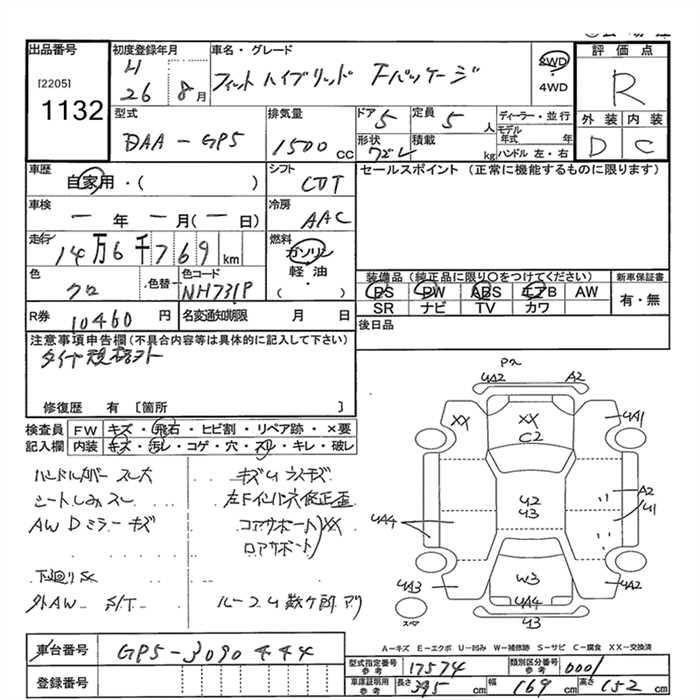 出品番号 初度登録年月 車名・グレード 評価点
[2205] H 26 8月 フィット ハイブリッド Fパッケージ 2WD ・ 4WD R
1132
型式 排気量 ドア 5 定員 5人 ディーラー・並行 外装 内装
DAA-GP5 1500cc 形状 積載 kg モデル年式 年 D C
ハンドル 左・右
車歴 シフト セールスポイント (正常に機能するものに限ります)
自家用・( ) CVT
車検 冷房
ー年ー月(ー日) AAC
走行 燃料
14万6千769km ガソリン・軽油 ( )
色 色替 色コード 装備品 (純正品に限り○をつけてください) 新車保証書
クロ NH731P PS PW ABS エアB AW 有・無
SR ナビ TV カワ
R券 10460円 名変通知期限 月 日 後日品
注意事項申告欄(不具合内容等は具体的に記入して下さい)
タイヤ規格外
修復歴 有 [箇所 ]
検査員記入欄 FW キズ・飛石・ヒビ割・リペア跡・×要
内装 キズ・汚レ・コゲ・穴・スレ・キレ・破レ
ハンドルカバースレ大 キズUうすキズ
シートしみスレ 左Fインパ穴修正歪
AW Dミラーキズ コアサポート XX
ロアサポート
下廻りSC
外AW S/T ルーフU数ヶ所アリ
P2
UA2 A2
XX XX UA1
C2
U2 A2
U3 U1
UA4
UA3 W3 UA2
UA4
U3
スペア
A-キズ E-エクボ U-凹み W-補修跡 S-サビ C-腐食 XX-交換済
車台番号 GP5-3090444 型式指定番号 参考 17574 類別区分番号 参考 0001
登録番号 車庫証明用 参考 長さ 395cm 幅 169cm 高さ 152cm